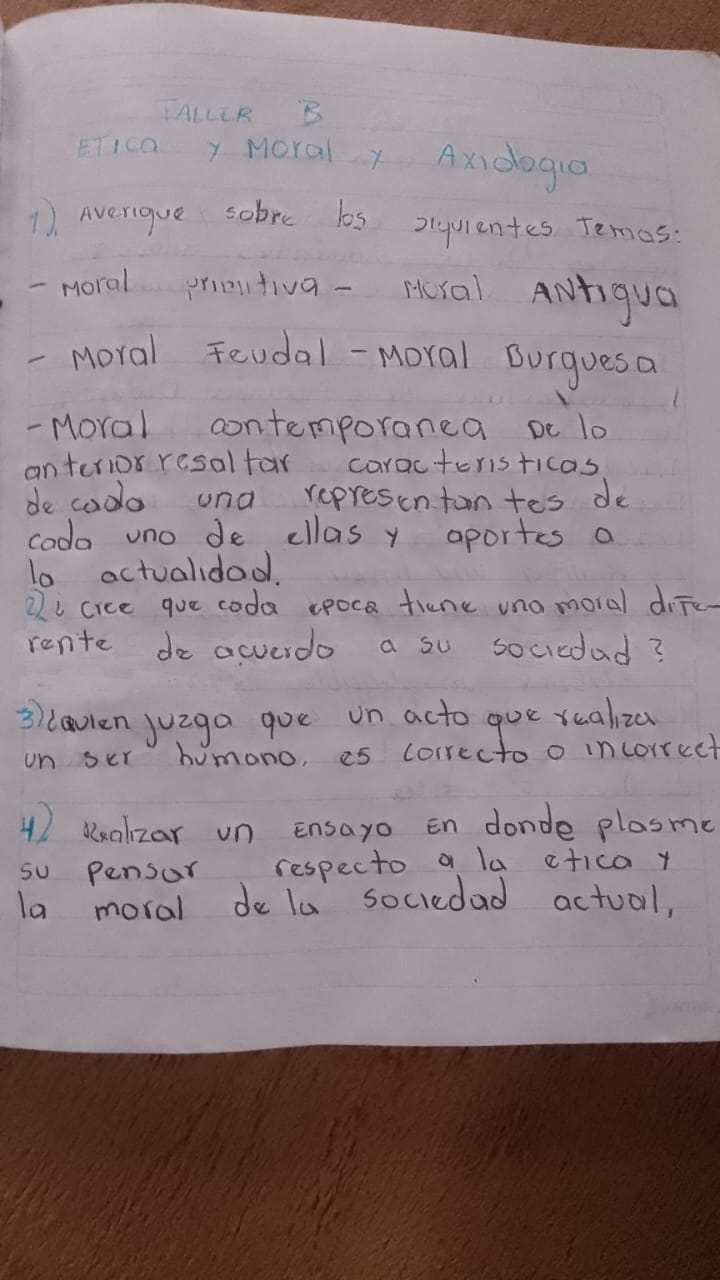 TALLER B
ETICA y Moral y Axiologia
1). Averigue sobre los siguientes Temas:
- Moral primitiva - Moral ANtigua
- Moral Feudal - Moral Burguesa
- Moral contemporanea De lo
anterior resaltar caracteristicas
de cada una representantes de
cada uno de ellas y aportes a
la actualidad.
2) ¿ cree que cada epoca tiene una moral dife-
rente de acuerdo a su sociedad?
3) ¿quien juzga que un acto que realiza
un ser humano, es correcto o incorrect
4) Realizar un Ensayo En donde plasme
su pensar respecto a la etica y
la moral de la sociedad actual,